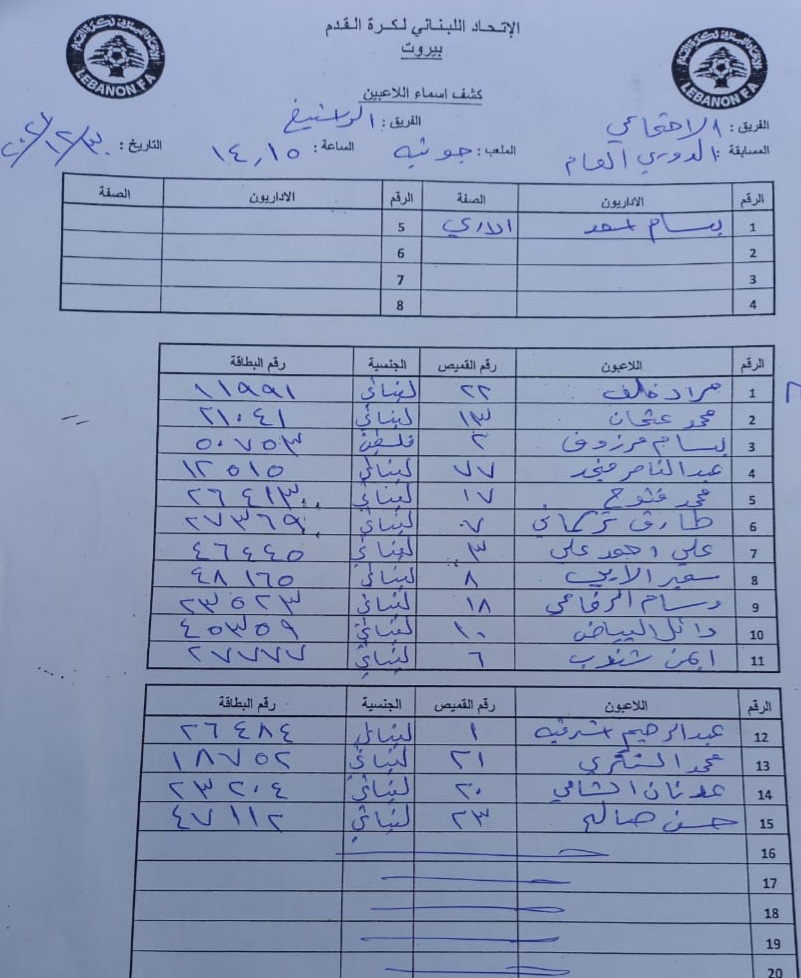 الإتحاد اللبناني لكرة القدم
بيروت
LEBANON F.A
LEBANON F.A
كشف اسماء اللاعبين
الفريق : الاجتماعي الفريق :
المسابقة : الدوري العام الملعب : جونيه الساعة : ١٤,١٥ التاريخ :
الرقم الاداريون الصفة الرقم الاداريون الصفة
1 بسام اسعد 5
2 6
3 7
4 8
الرقم اللاعبون رقم القميص الجنسية رقم البطاقة
1 مراد خلف ٢٢ لبناني ١١٩٩١
2 محمد عثمان ١٣ لبناني ٢١٠٤١
3 بسام مرزوق ٢ ٥٠٧٥٣
4 عبد الناصر منجد ٧٧ لبناني ١٢٥١٥
5 محمد فتوح ١٧ لبناني ٢٦٤١٣
6 طارق تركماني ٧ لبناني ٢٧٣٦٩
7 علي احمد علي ٣ لبناني ٤٦٤٤٥
8 سمير ٨ لبناني ٤٨١٦٥
9 وسام الرفاعي ١٨ لبناني ٢٣٥٢٣
10 وائل البياض ١٠ لبناني ٤٥٣٥٩
11 ايمن شنوب ٦ لبناني ٢٧٧٧٧
الرقم اللاعبون رقم القميص الجنسية رقم البطاقة
12 عبد الرحيم ١ لبناني ٢٦٤٨٤
13 محمد السكري ٢١ لبناني ١٨٧٥٢
14 عدنان الشامي ٢٠ لبناني ٢٣٢٠٤
15 حسن صالح ٢٣ لبناني ٤٧١١٢
16
17
18
19
20